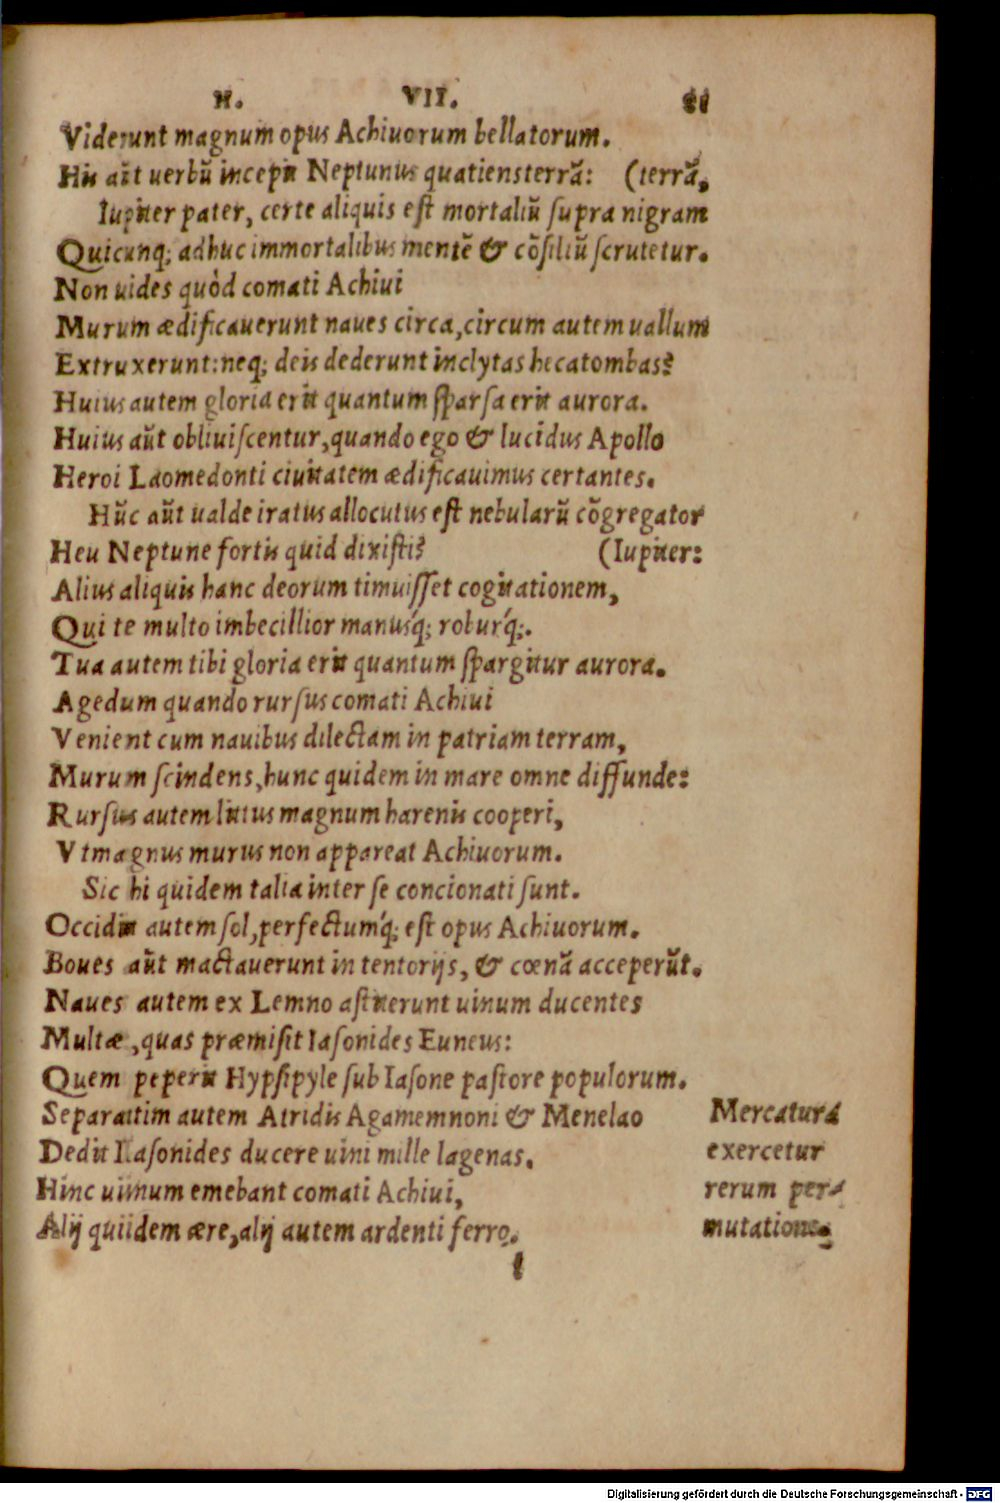 H. VII. 81
Viderunt magnum opus Achiuorum bellatorum.
His aũt uerbũ incepit Neptunus quatiens terrã: (terrã,
Iupiter pater, certe aliquis est mortaliũ supra nigram
Quicunq; adhuc immortalibus mentẽ & cõsiliũ scrutetur.
Non uides quòd comati Achiui
Murum ædificauerunt naues circa, circum autem uallum
Extruxerunt: neq; deis dederunt inclytas hecatombas?
Huius autem gloria erit quantum sparsa erit aurora.
Huius aũt obliuiscentur, quando ego & lucidus Apollo
Heroi Laomedonti ciuitatem ædificauimus certantes.
Hũc aũt ualde iratus allocutus est nebularũ cõgregator
Heu Neptune fortis quid dixisti? (Iupiter:
Alius aliquis hanc deorum timuisset cogitationem,
Qui te multo imbecillior manusq́; roburq́;.
Tua autem tibi gloria erit quantum spargitur aurora.
Agedum quando rursus comati Achiui
Venient cum nauibus dilectam in patriam terram,
Murum scindens, hunc quidem in mare omne diffunde:
Rursus autem littus magnum harenis cooperi,
Vt magnus murus non appareat Achiuorum.
Sic hi quidem talia inter se concionati sunt.
Occidit autem sol, perfectumq́; est opus Achiuorum.
Boues aũt mactauerunt in tentorijs, & cœnã acceperũt.
Naues autem ex Lemno astiterunt uinum ducentes
Multæ, quas præmisit Iasonides Euneus:
Quem peperit Hypsipyle sub Iasone pastore populorum.
Separattim autem Atridis Agamemnoni & Menelao
Dedit Iasonides ducere uini mille lagenas.
Hinc uinum emebant comati Achiui,
Alij quidem ære, alij autem ardenti ferro.
Mercatura
exercetur
rerum per-
mutatione.
l
Digitalisierung gefördert durch die Deutsche Forschungsgemeinschaft - DFG